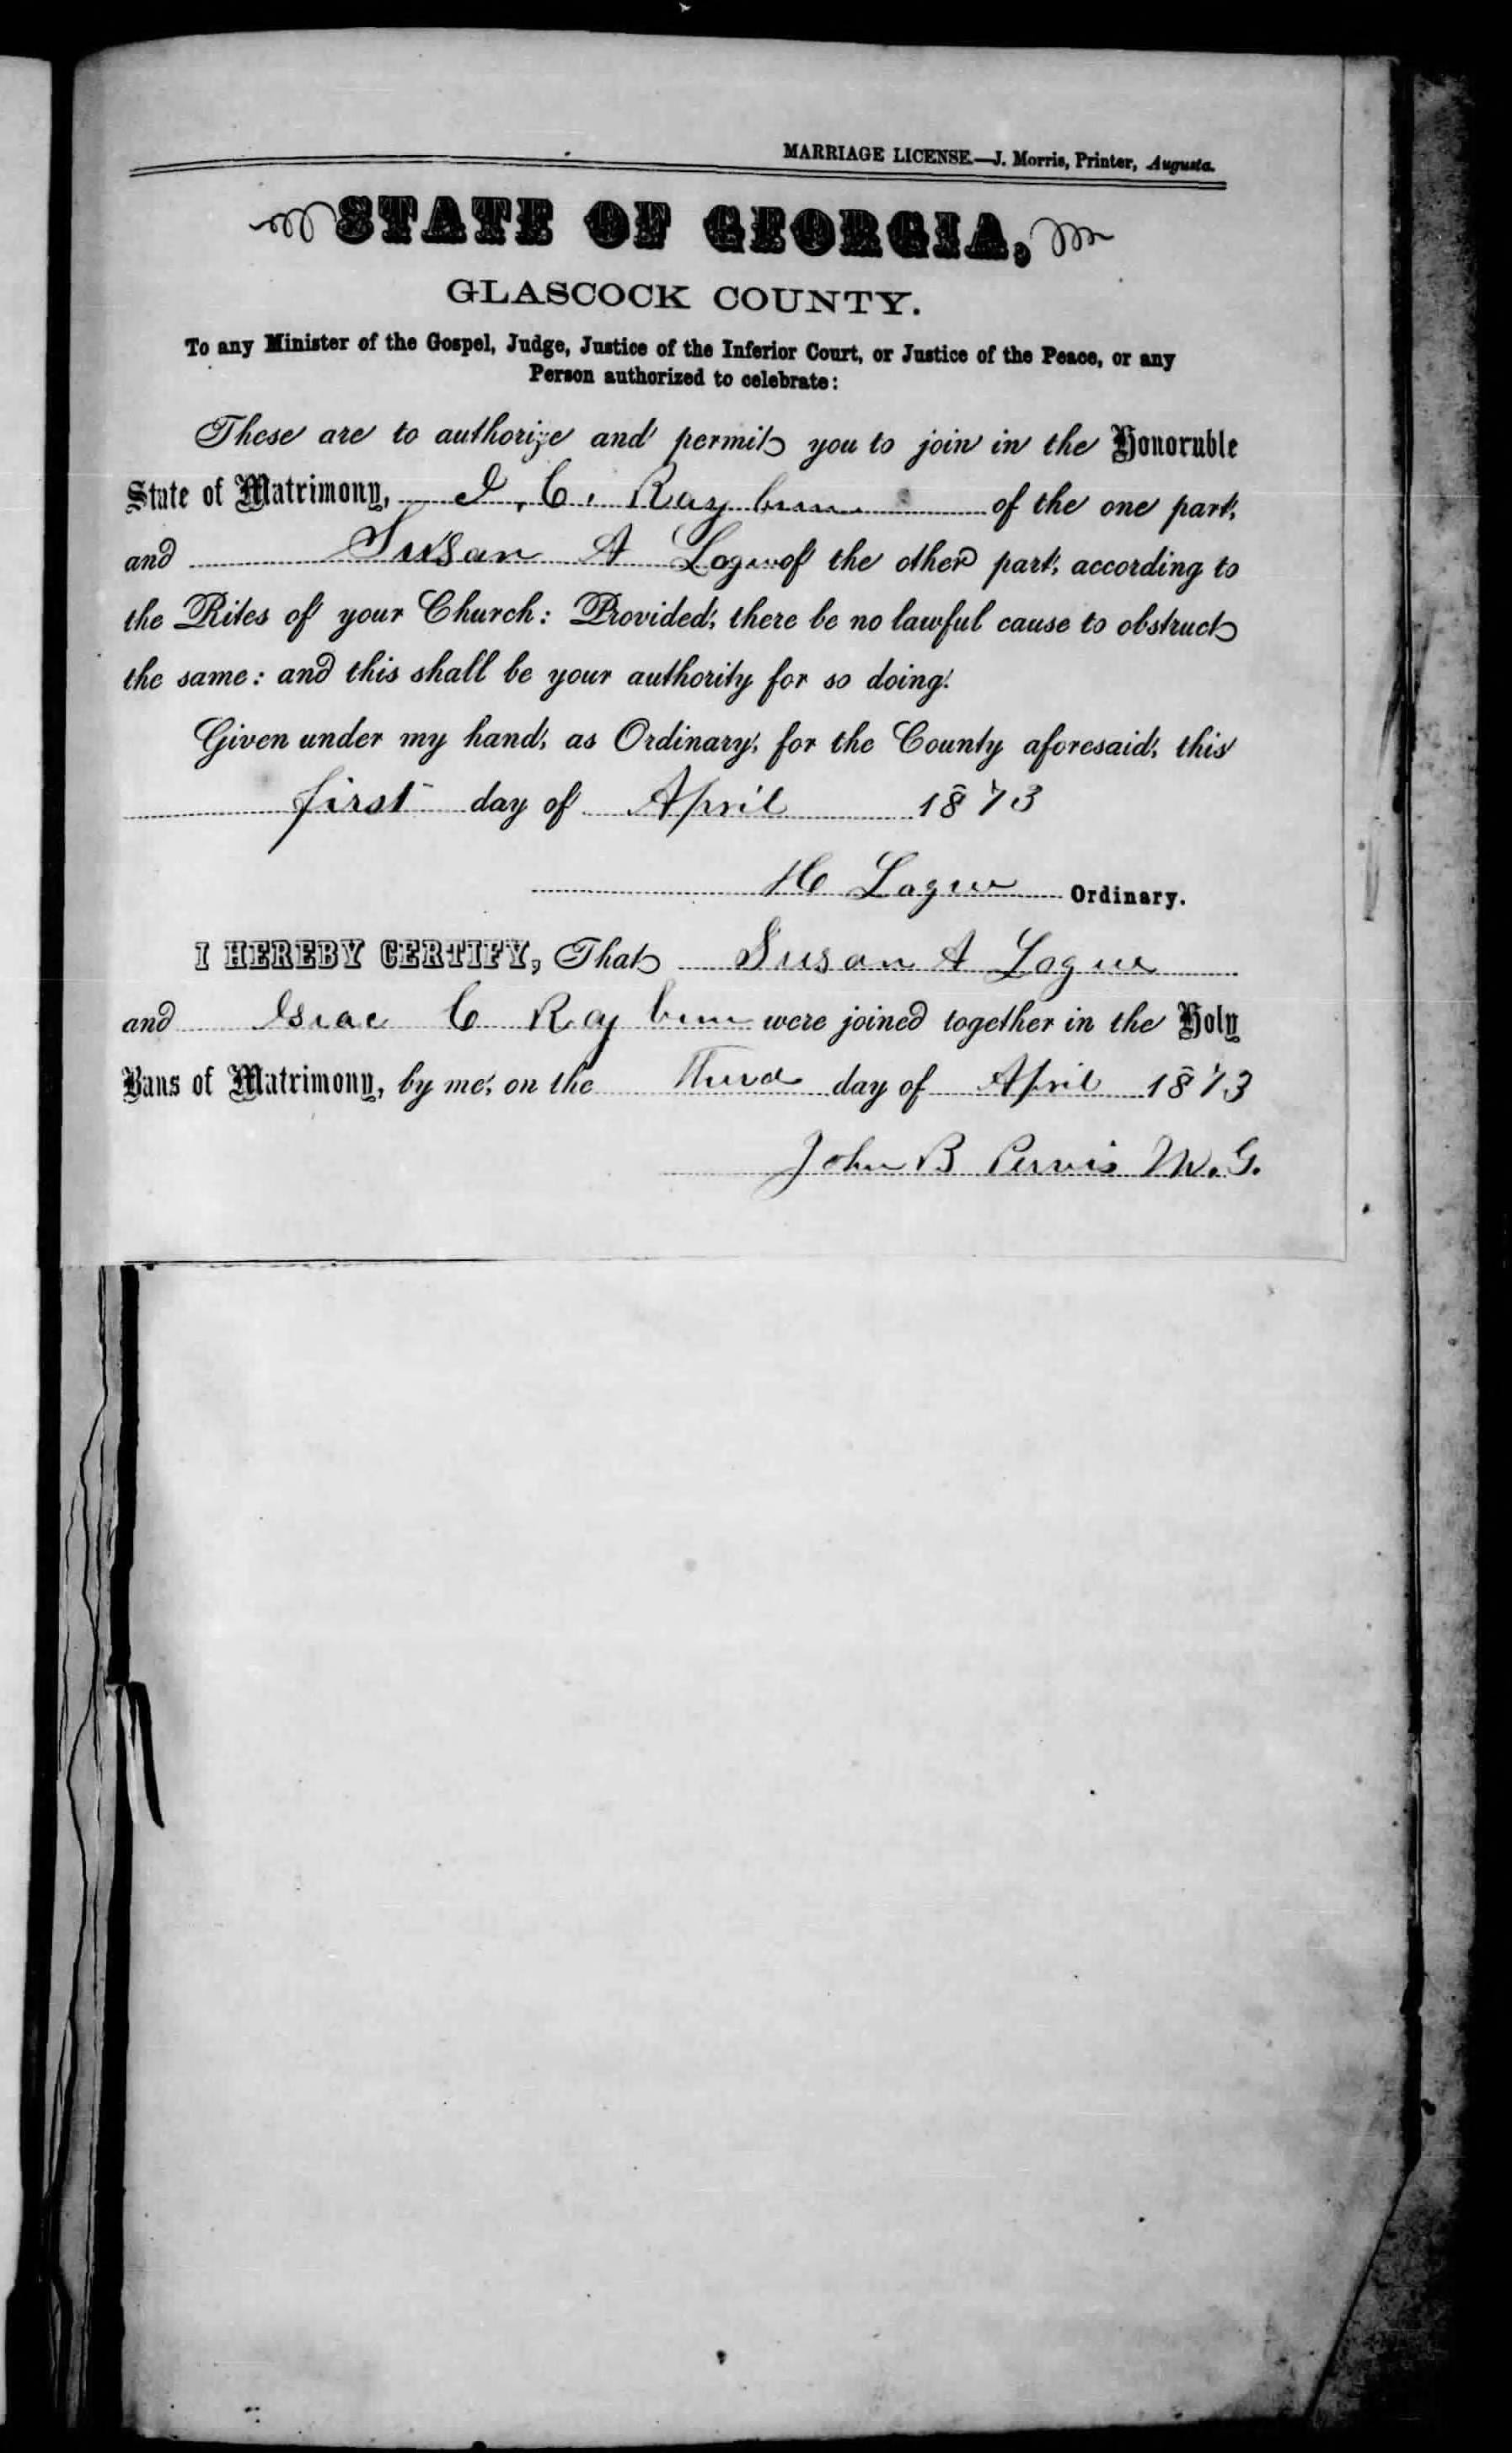 MARRIAGE LICENSE.—J. Morris, Printer, Augusta.
STATE OF GEORGIA,
GLASCOCK COUNTY.
To any Minister of the Gospel, Judge, Justice of the Inferior Court, or Justice of the Peace, or any
Person authorized to celebrate:
These are to authorize and permit you to join in the Honorable
State of Matrimony, I. C. Rayburn of the one part,
and Susan A Logue of the other part, according to
the Rites of your Church: Provided, there be no lawful cause to obstruct
the same: and this shall be your authority for so doing.
Given under my hand, as Ordinary, for the County aforesaid, this
first day of April 1873
H Logue Ordinary.
I HEREBY CERTIFY, That Susan A Logue
and Isiac C Rayburn were joined together in the Holy
Bans of Matrimony, by me, on the Third day of April 1873
John B Purvis M.G.